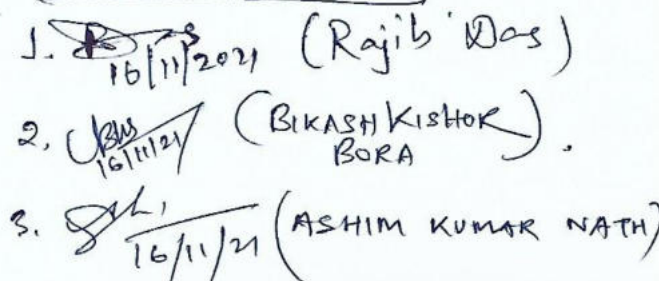 1. 16/11/2021 (Rajib Das)
2. 16/11/21 (BIKASH KISHOR BORA).
3. 16/11/21 (ASHIM KUMAR NATH)